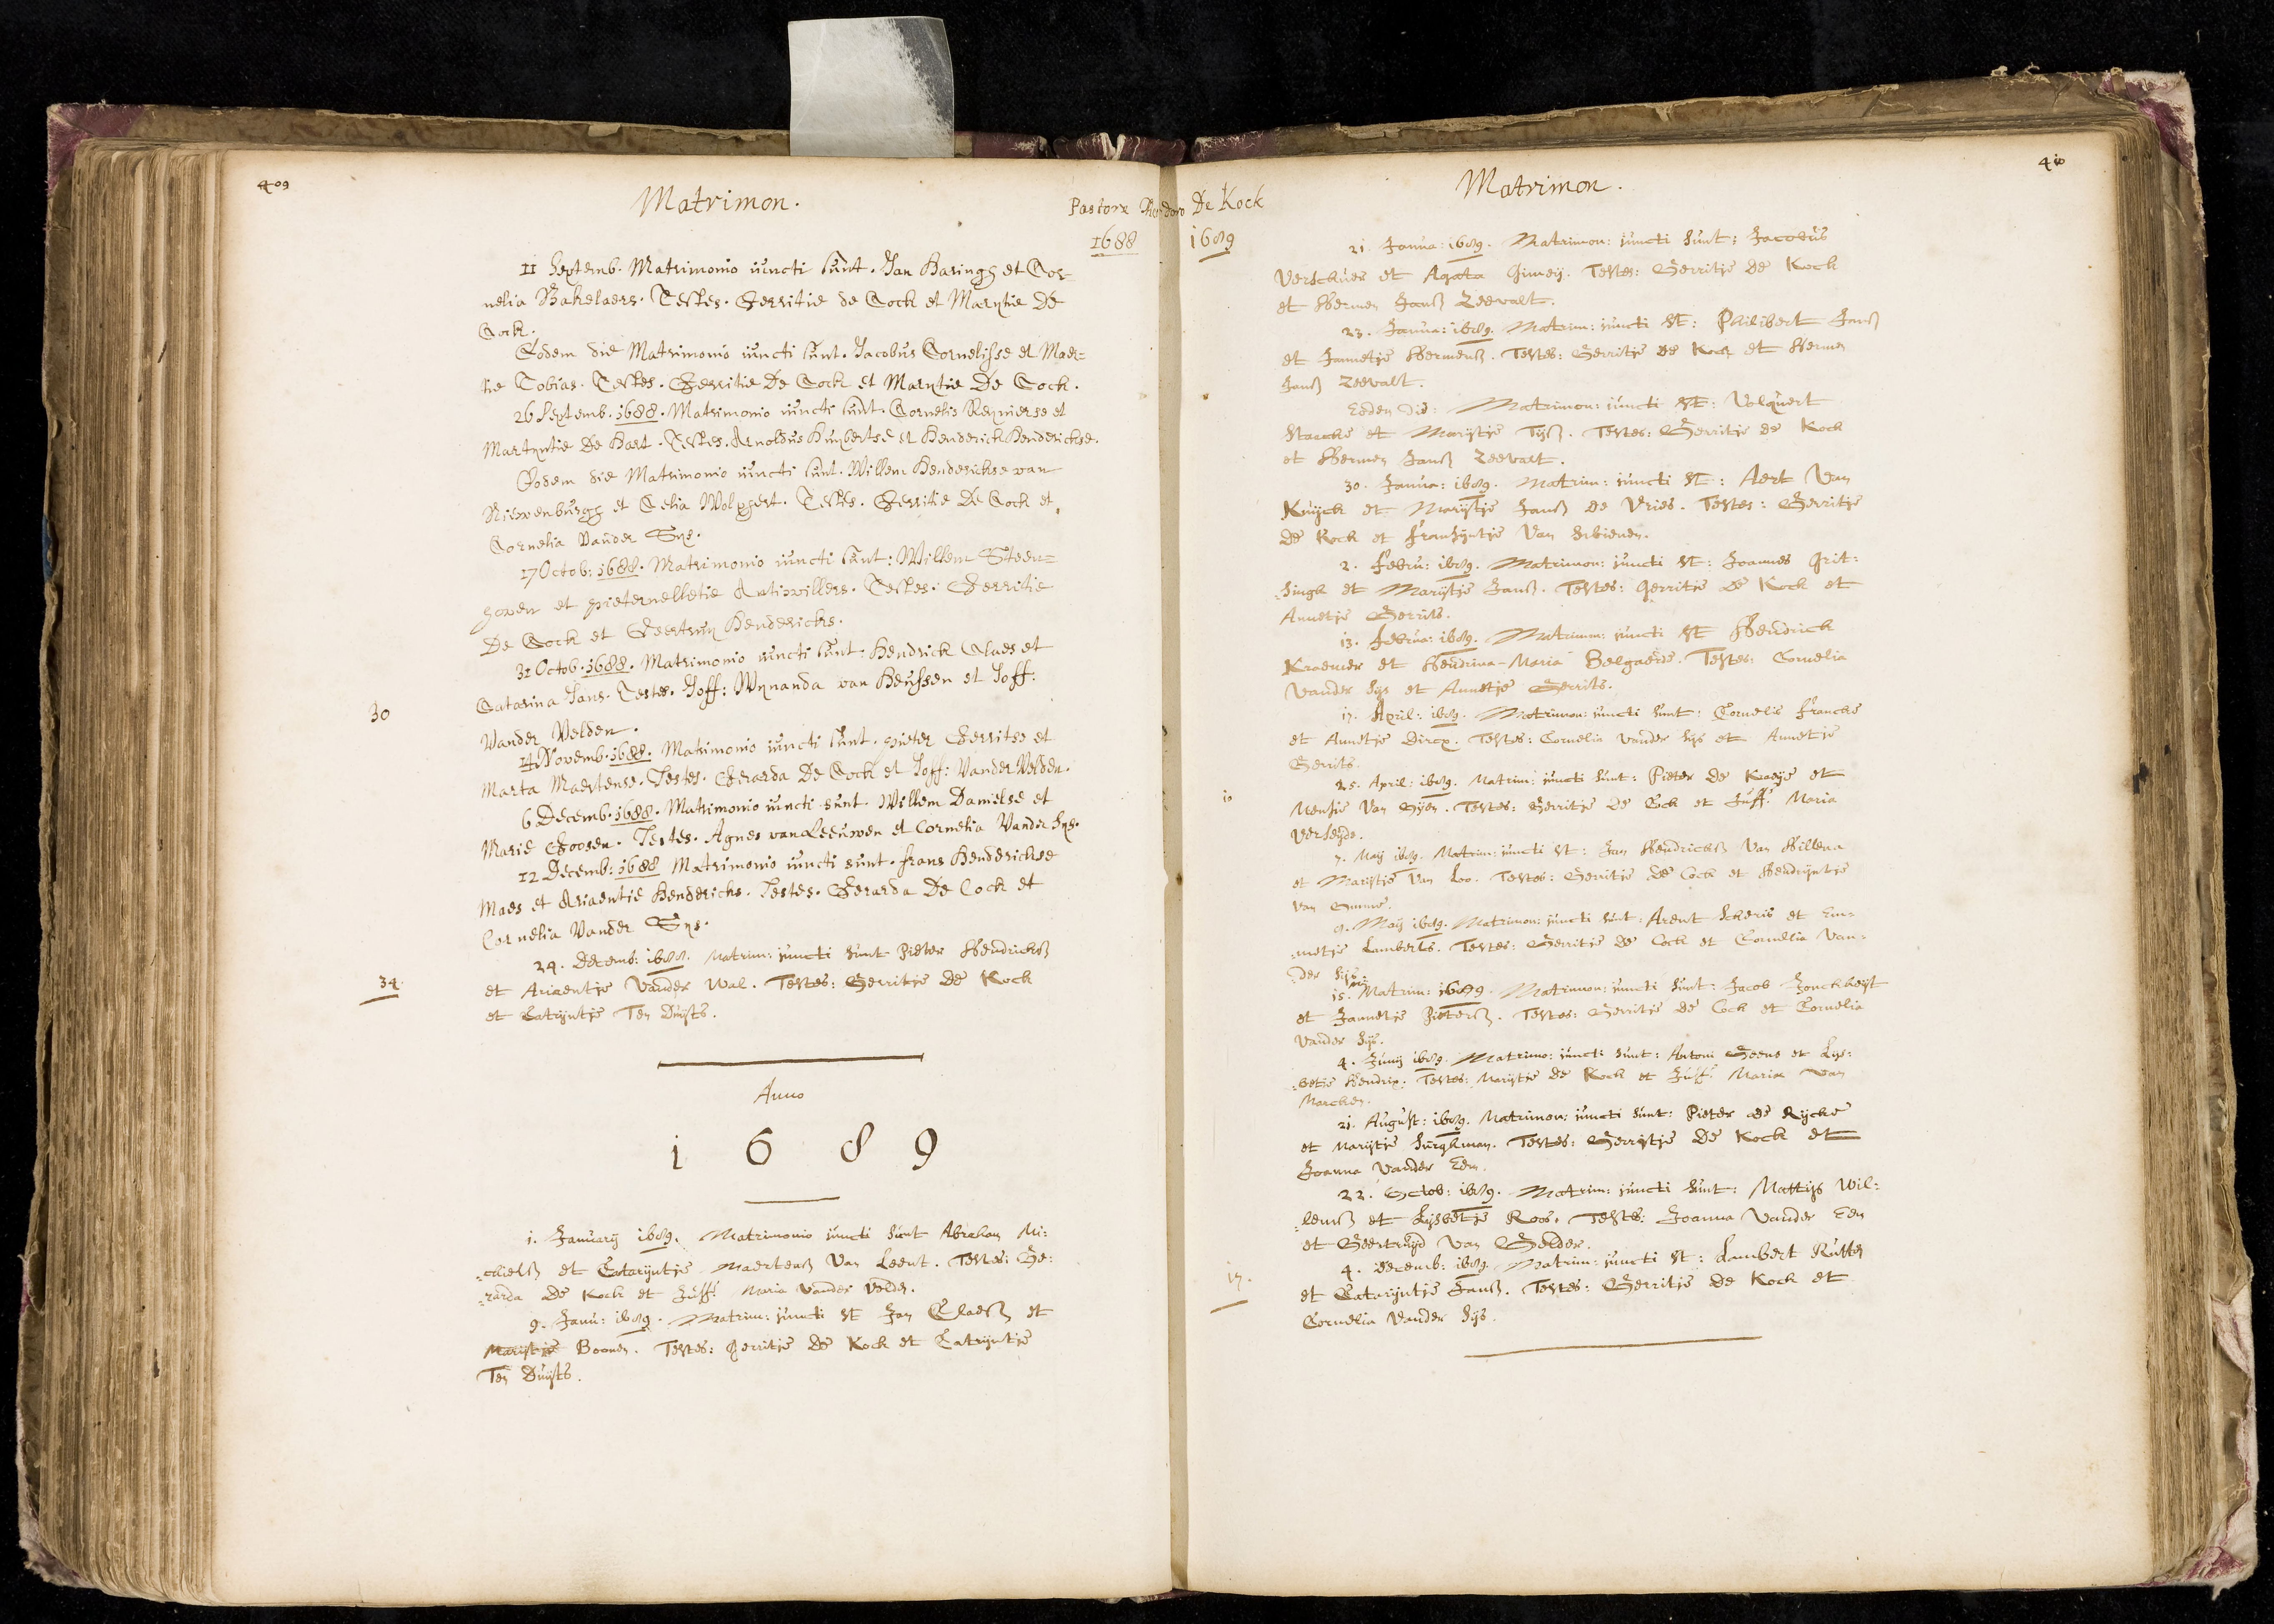 409
Matrimon.
Pastore Theodoro De Kock
1688
11 Septemb. Matrimonio iuncti sunt. Jan Haringh et Cor-
nelia Bakelaers. Testes. Gerritie de Cock et Marytie De
Cock.
Eodem die Matrimonio iuncti sunt. Jacobus Cornelisse et Maer=
tie Tobias. Testes. Gerritie De Cock et Marytie De Cock.
26 Septemb. 1688. Matrimonio iuncti sunt. Cornelis Reynierse et
Martyntie De Hart. Testes. Arnoldus Huybertse et Henderick Henderickse.
Eodem die Matrimonio iuncti sunt. Willem Henderickse van
Niewenburgh et Celia Wolphert. Testes. Gerritie De Cock et
Cornelia Vander Sys.
17 Octob: 1688. Matrimonio iuncti sunt: Willem Steen=
hower et Pieternelletie Antiwillers. Testes. Gerritie
De Cock et Geertruy Hendericks.
31 Octob. 1688. Matrimonio iuncti sunt: Hendrick Claes et
Catarina Jans. Testes. Joff: Wynanda van Heussen et Joff:
30
Vander Velden.
14 Novemb. 1688. Matrimonio iuncti sunt. Pieter Gerritse et
Marta Maertense. Testes. Gerarda De Cock et Joff: Vander Velden.
6 Decemb. 1688. Matrimonio iuncti sunt. Willem Danielse et
Marie Goosen. Testes. Agnes van Leeuwen et Cornelia Vander Sys.
12 Decemb: 1688 Matrimonio iuncti sunt. Frans Henderickse
Maes et Ariaentie Hendericks. Testes. Gerarda De Cock et
Cornelia Vander Sys.
29. Decemb: 1688. Matrim: juncti sunt Pieter Hendricksß
34
et Ariaentje Vander Wal. Testes: Gerritje De Kock
et Catrijntje Ten Duijsts.
Anno
1689
1. Januarij 1689. Matrimonio juncti sunt Abraham Mi:
:chielß et Catarijntje Maertenß Van Leent. Testes: Ge:
:rarda De Kock et Juff: Maria Vander Velde.
9. Janu: 1689. Matrim: juncti st Jan Claesß et
Marijtje Boonen. Testes: Gerritje De Kock et Catrijntje
Ten Duijsts.
410
Matrimon.
1689
21. Janua: 1689. Matrimon: juncti sunt: Jacobus
Verschuer et Agata Gimeij. Testes: Gerritje De Kock
et Hermen Janß Zeevalt.
23. Janua: 1689. Matrim: juncti st: Philibert Janß
et Jannetje Hermenß. Testes: Gerritje De Kock et Hermen
Janß Zeevalt.
Eodem die: Matrimon: juncti st: Volquert
Staecke et Marijtje Tijsß. Testes: Gerritje De Kock
et Hermen Janß Zeevalt.
30. Janua: 1689. Matrim: juncti st: Aert Van
Kuijck et Marijtje Janß De Vries. Testes: Gerritje
De Kock et Fransijntje Van
2. Febru: 1689. Matrimon: juncti st: Joannes Grit:
:singh et Marijtje Janß. Testes: Gerritje De Kock et
Annetje Gerrits.
13. Februa: 1689. Matrimon: juncti st Hendrick
Kraemer et Hendrina-Maria Belgaerde. Testes: Cornelia
Vander Sijs et Annetje Gerrits.
17. April: 1689. Matrimon: juncti sunt: Cornelis Francke
et Annetje Dircx. Testes: Cornelia Vander Sijs et Annetje
Gerrits.
25. April: 1689. Matrim: juncti sunt: Pieter De Kaeije et
10
Mensie Van Gijen. Testes: Gerritje De Cock et Juff: Maria
Verheijde.
7. Maij 1689. Matrim: juncti st: Jan Hendricksß Van Hillena
et Marijtje Van Loo. Testes: Gerritje De Cock et Hendrijntje
Van
9. Maij 1689. Matrimon: juncti sunt: Arent Scheris et Em=
:metje Lamberts. Testes: Gerritje De Cock et Cornelia Van=
:der Sijs.
15. Matrim: 1689. Matrimon: juncti sunt: Jacob Jonckheijt
et Jannetje Pietersß. Testes: Gerritje De Cock et Cornelia
Vander Sijs.
4. Junij 1689. Matrimo: juncti sunt: Antoni Geens et Lijs:
:betje Hendrix. Testes: Marijtje De Kock et Juff: Maria Van
Marcken.
21. August: 1689. Matrimon: juncti sunt: Pieter De Rijcke
et Marijtje Burghman. Testes: Gerritje De Kock et
Joanna Vander Eem.
22. Octob: 1689. Matrim: juncti sunt: Mattijs Wil:
:lemsß et Lijsbetje Roos. Testes: Joanna Vander Eem
et Geertruijd Van Gelder.
4. Decemb: 1689. Matrim: juncti st: Lambert Rutten
17.
et Catarijntje Janß. Testes: Gerritje De Kock et
Cornelia Vander Sijs.